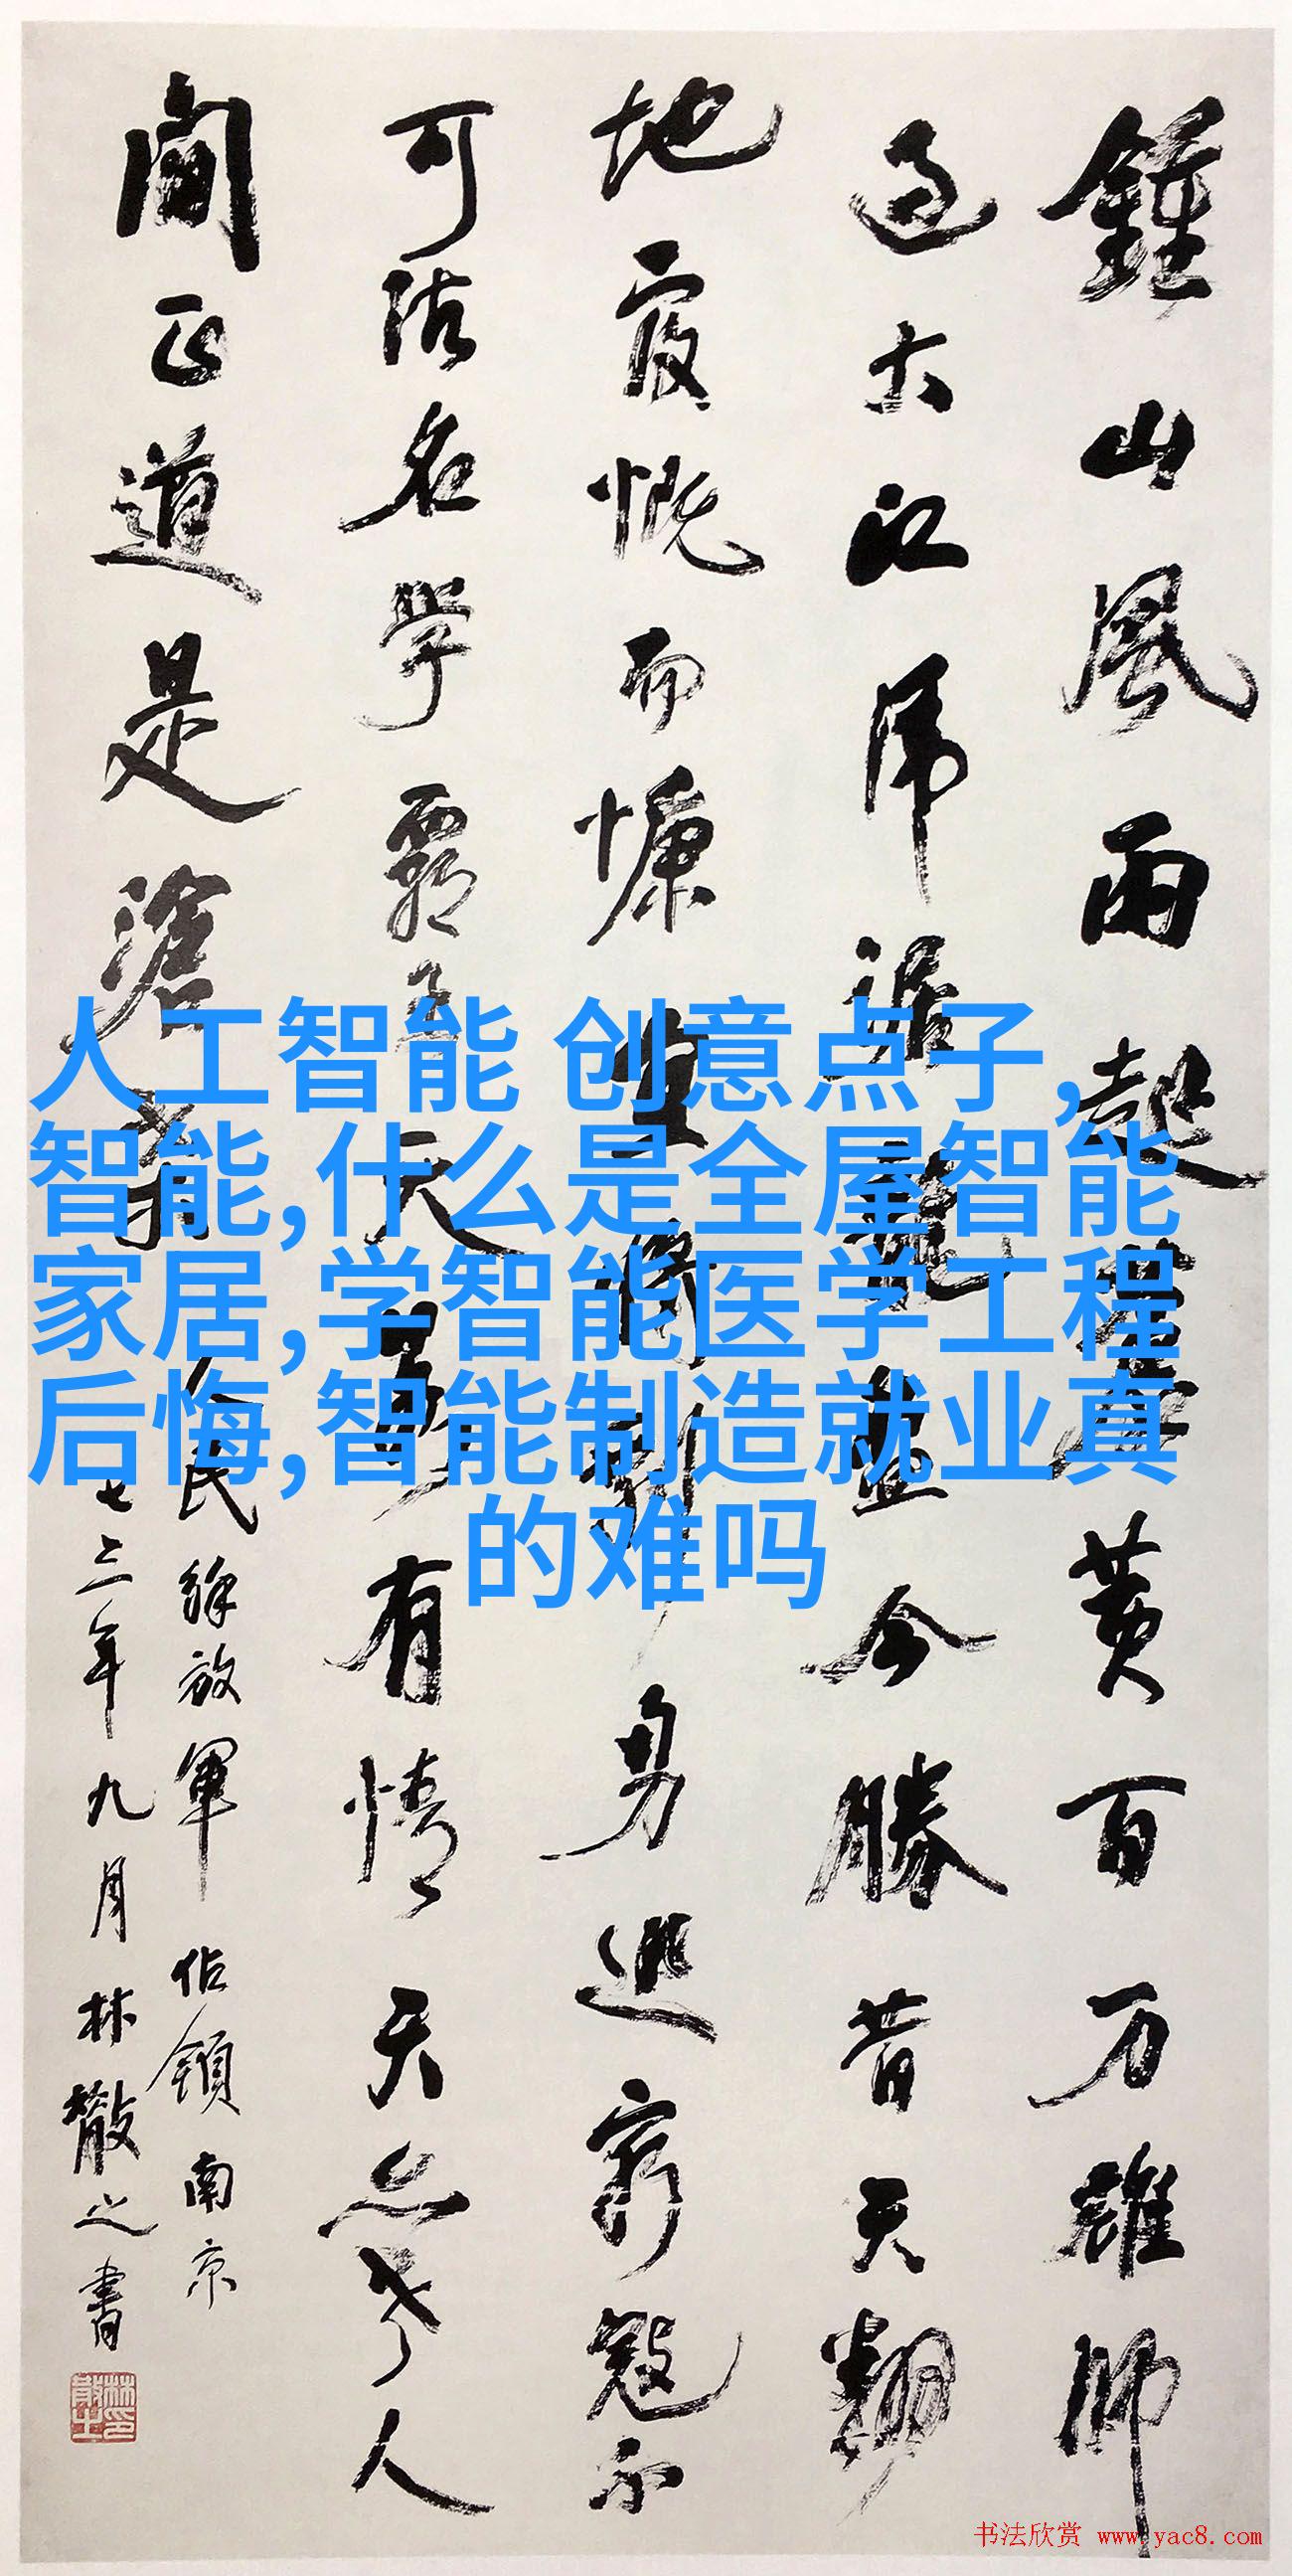 鍾山風雨起蒼黄百万雄師
過大江虎踞龍盤今勝昔天翻
地覆慨而慷宜將剩勇追窮寇不
可沽名學霸王天若有情天亦老人
間正道是滄桑
人民解放軍佔領南京
七三年九月林散之書
林散之印
人工智能 创意点子,
智能,什么是全屋智能
家居,学智能医学工程
后悔,智能制造就业真
的难吗
书法欣赏 www.yac8.com